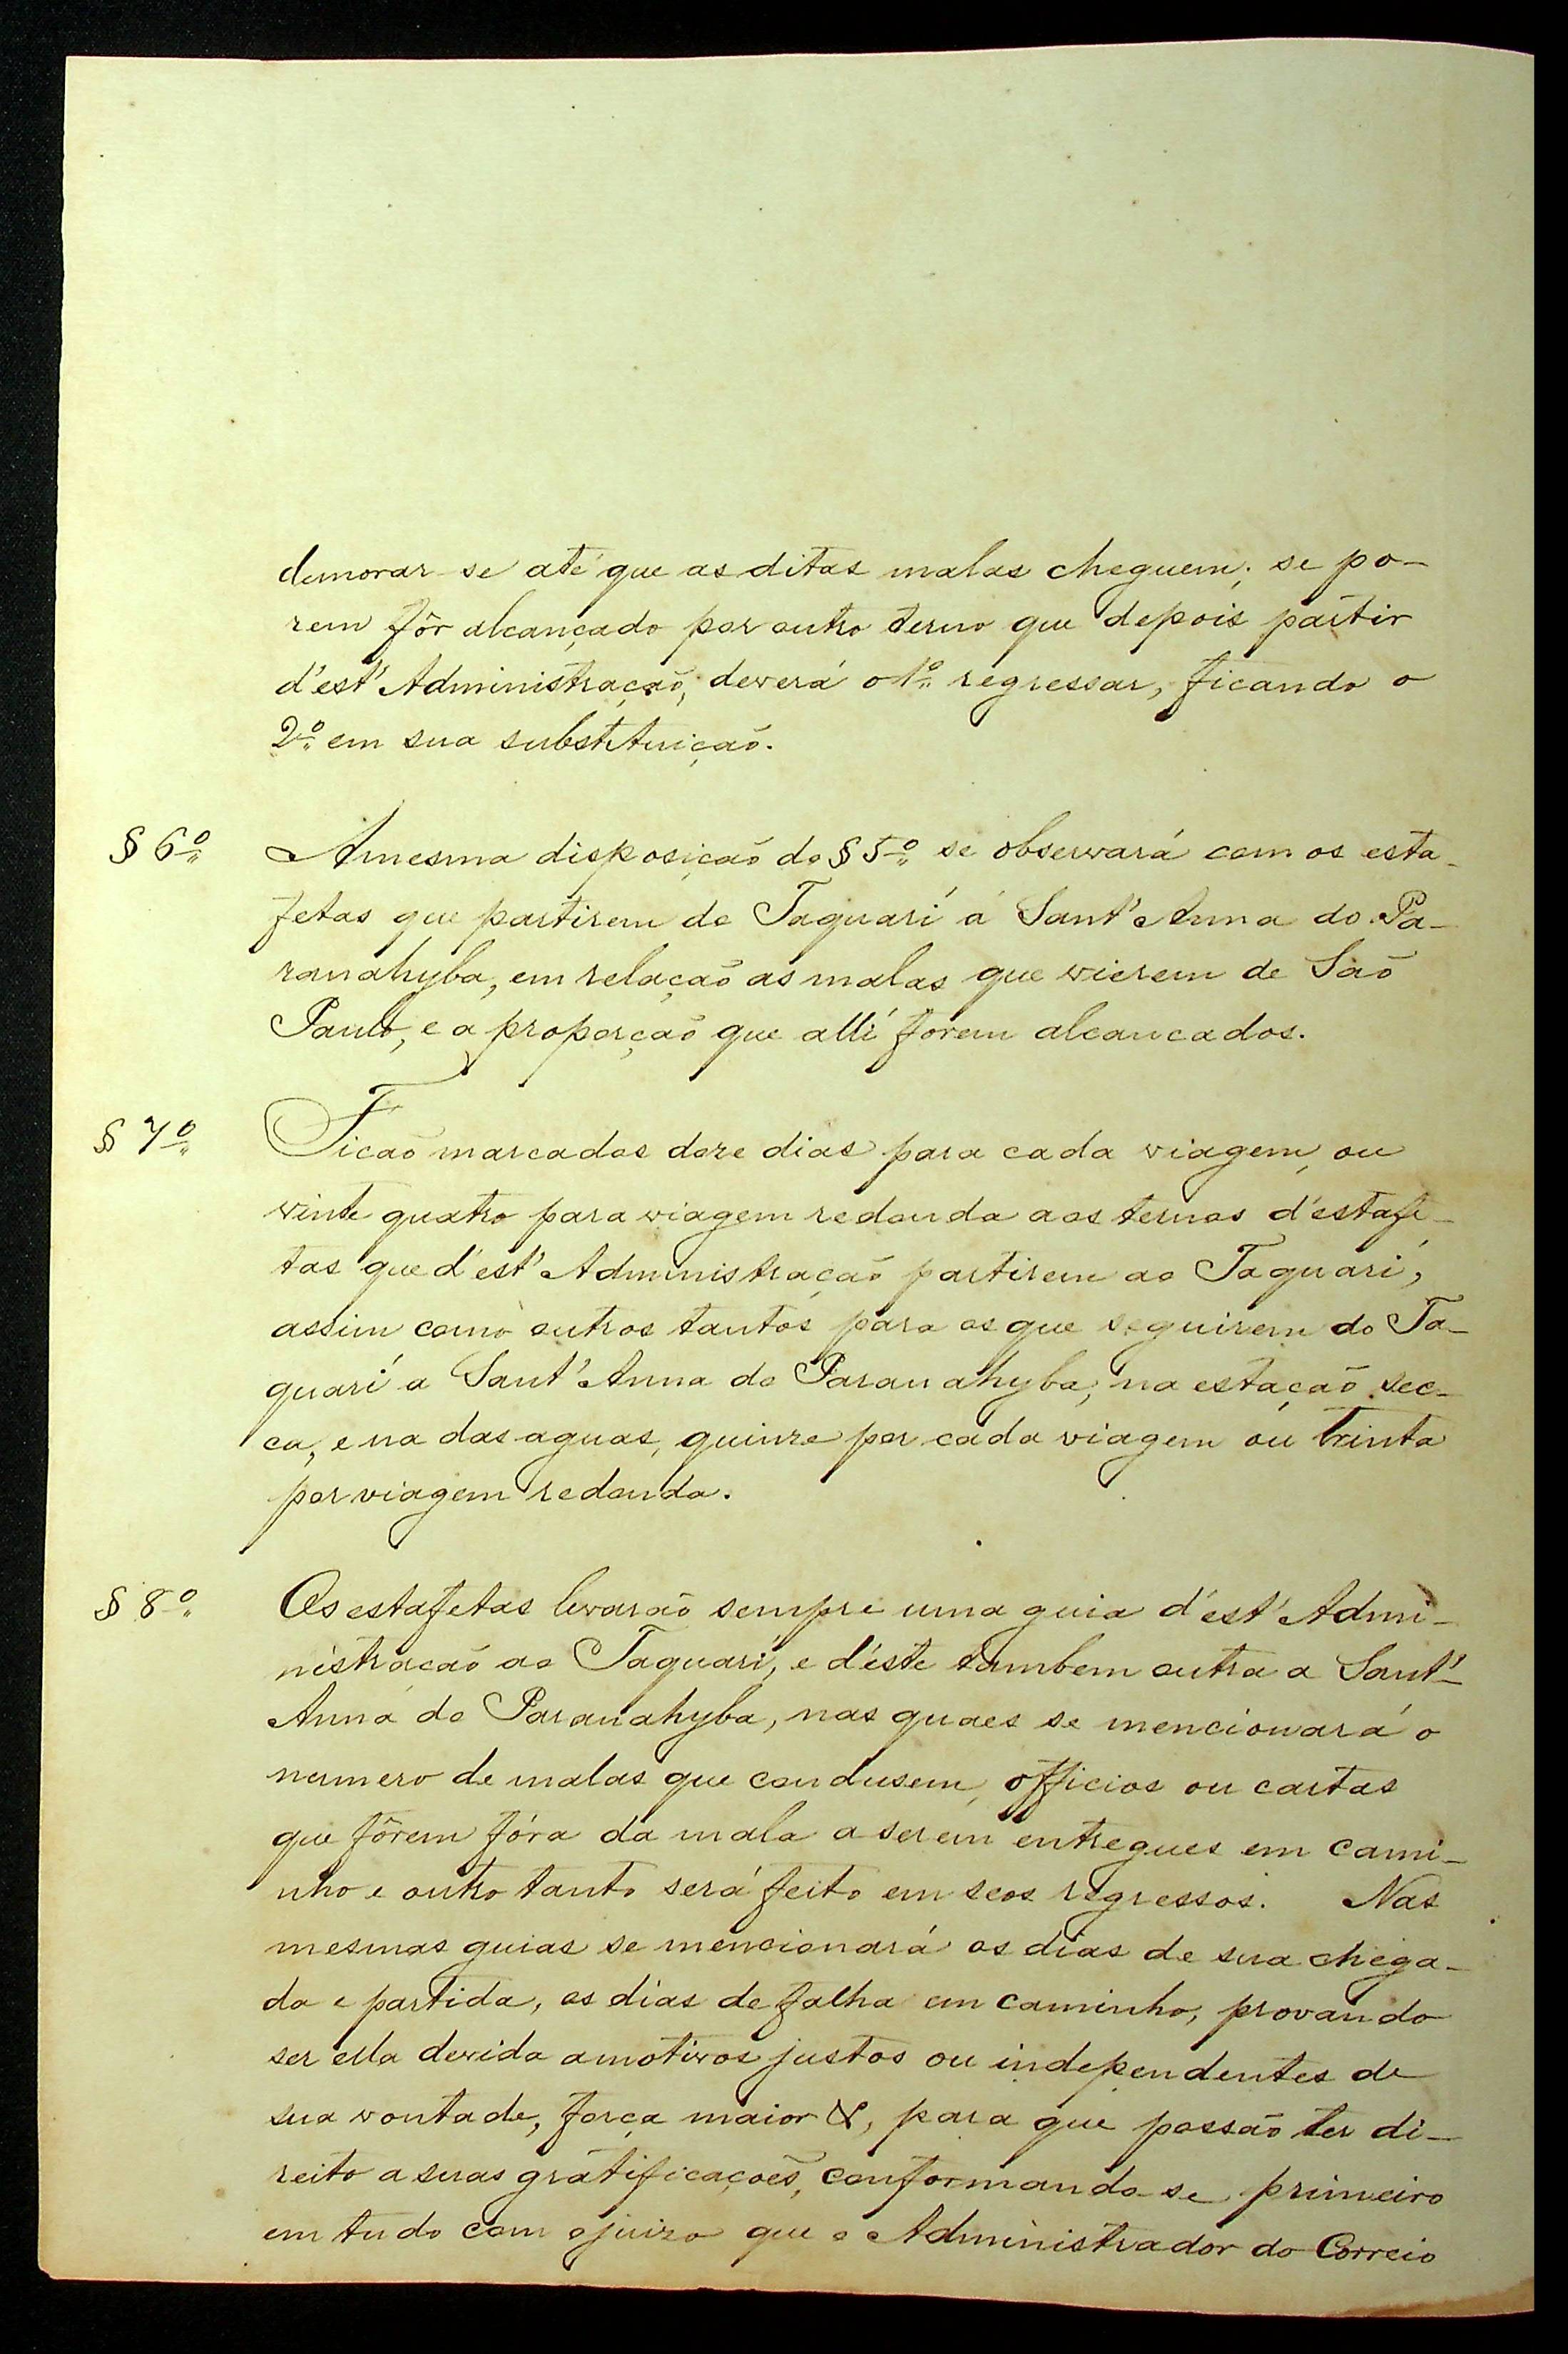 demorar-se até que as ditas malas cheguem; se po-
rem fôr alcançado por outro terno que depois partir
d'est'Administração, deverá o 1º regressar, ficando o
2º em sua substituição.
§ 6º A mesma disposição do § 5º se observará com os esta-
fetas que partirem de Taquarí á Sant'Anna do Pa-
ranahyba, em relação as malas que vierem de São
Paulo, e a proporção que allí forem alcancados.
§ 7º Ficão marcados doze dias para cada viagem, ou
vinte quatro para viagem redonda aos ternos d'estafe-
tas que d'est'Administração partirem ao Taquarí,
assim como outros tantos para os que seguirem do Ta-
quarí a Sant'Anna do Paranahyba, na estação sec-
ca, e na das aguas, quinze por cada viagem ou trinta
por viagem redonda.
§ 8º Os estafetas levarão sempre uma guia d'est'Admi-
nistração ao Taquarí, e d'éste tambem outra a Sant'
Anna do Paranahyba, nas quaes se mencionará o
numero de malas que condusem, officios ou cartas
que fôrem fóra da mala a serem entregues em cami-
nho e outro tanto será feito em seos regressos. Nas
mesmas guias se mencionará os dias de sua chega-
da e partida, os dias de falha em caminho, provando
ser ella devida a motivos justos ou independentes de
sua vontade, força maior &, para que possão ter di-
reito a suas gratificações, conformando-se primeiro
em tudo com o juizo que o Administrador do Correio